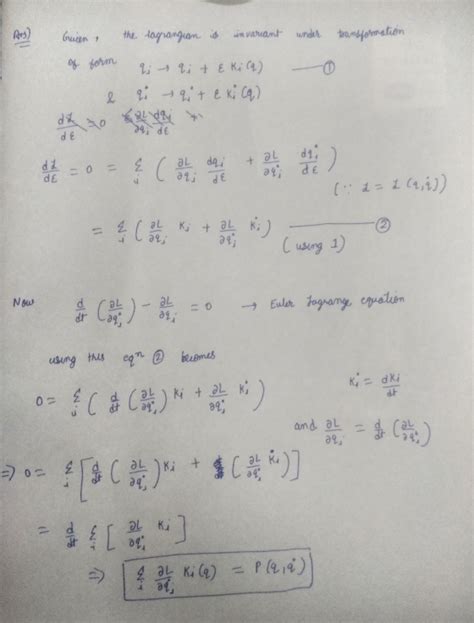 Ans) Given, the lagrangian is invariant under transformation
of form qi → qi + ε Ki(q) —— ①
& q̇i → q̇i + ε K̇i(q)
dL/dε = 0 ∂L/∂qi dqi/dε +
dL/dε = 0 = Σi ( ∂L/∂qi dqi/dε + ∂L/∂q̇i dq̇i/dε )
(∵ L = L (q, q̇))
= Σi ( ∂L/∂qi Ki + ∂L/∂q̇i K̇i ) —— ②
(using 1)
Now d/dt (∂L/∂q̇i) - ∂L/∂qi = 0 → Euler lagrange equation
using this eqn ② becomes
0 = Σi ( d/dt (∂L/∂q̇i) Ki + ∂L/∂q̇i K̇i ) K̇i = dKi/dt
and ∂L/∂qi = d/dt (∂L/∂q̇i)
=> 0 = Σi [ d/dt (∂L/∂q̇i) Ki + (∂L/∂q̇i K̇i) ]
= d/dt Σi [ ∂L/∂q̇i Ki ]
=> Σi ∂L/∂q̇i Ki(q) = P(q, q̇)